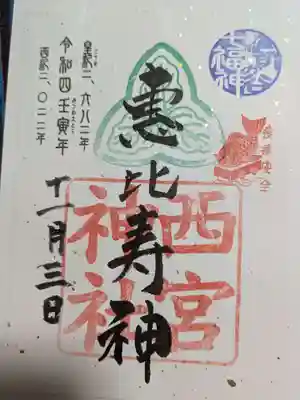 七福神
恵比寿神
西宮
神社
皇紀二、六八二年
令和四壬寅年
みづのえとら
西紀二、〇二二年
十一月三日